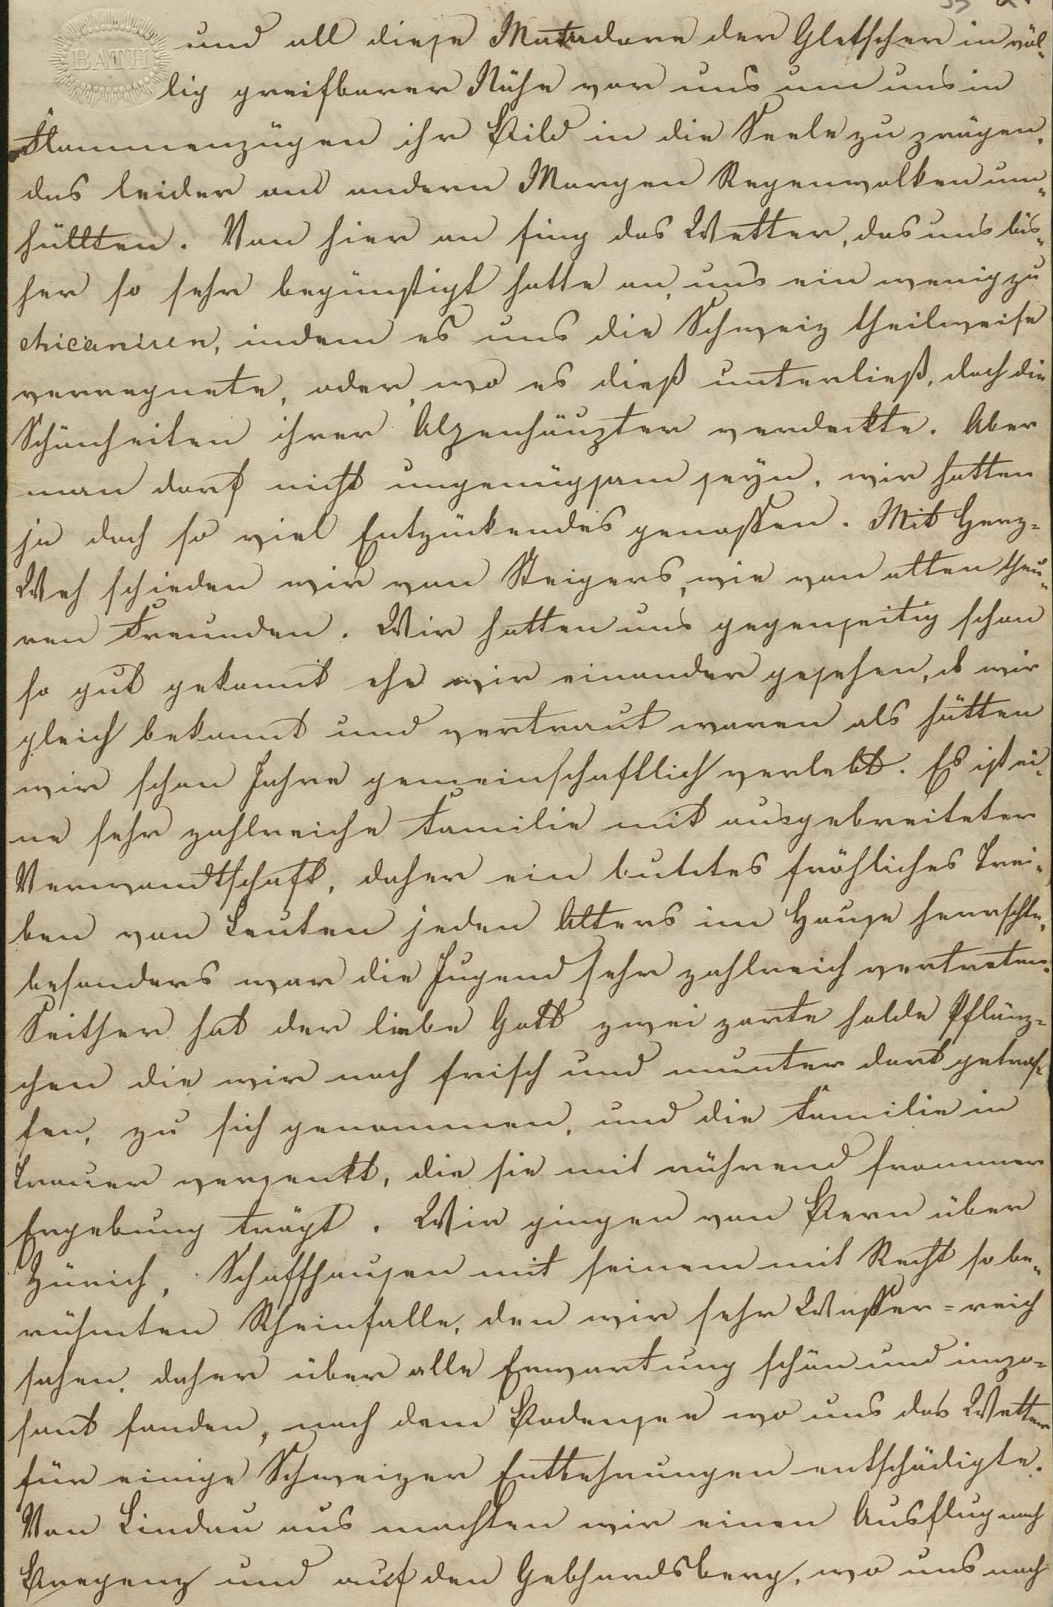 BATH
und all diese Matadore der Gletscher in völ-
lig greifbarer Nähe vor uns um uns in
Flammenzügen ihr Bild in die Seele zu prägen,
das leider am andern Morgen Regenwolken um-
hüllten. Von hier an fing das Wetter, das uns bis-
her so sehr begünstigt hatte an, uns ein wenig zu
chicaniren, indem es uns die Schweiz theilweise
verregnete, oder, wo es dieß unterließ, doch die
Schönheiten ihrer Alpenhäupter verdeckte. Aber
man darf nicht ungenügsam seyn, wir hatten
ja doch so viel Entzückendes genossen. Mit Herz-
Weh schieden wir von Steigers, wie von alten theu-
ren Freunden. Wir hatten uns gegenseitig schon
so gut gekannt ehe wir einander gesehen, wir
gleich bekannt und vertraut waren als hätten
wir schon Jahre gemeinschaftlich verlebt. Es ist ei-
ne sehr zahlreiche Familie mit ausgebreiteter
Verwandtschaft, daher ein buntes fröhliches Trei-
ben von Leuten jeden Alters im Hause herrschte,
besonders war die Jugend sehr zahlreich vertreten.
Seither hat der liebe Gott zwei zarte holde Pflänz-
chen die wir noch frisch und munter dort getrof-
fen, zu sich genommen, und die Familie in
Trauer versenkt, die sie mit rührend frommer
Ergebung trägt. Wir gingen von Bern über
Zürich, Schaffhausen mit seinem mit Recht so be-
rühmten Rheinfalle, den wir sehr Wasser-reich
sahen, daher über alle Erwartung schön und impo-
sant fanden, nach dem Bodensee wo uns das Wetter
für einige Schweizer Entbehrungen entschädigte.
Von Lindau aus machten wir einen Ausflug nach
Bregenz und auf den Gebhardsberg, wo uns noch